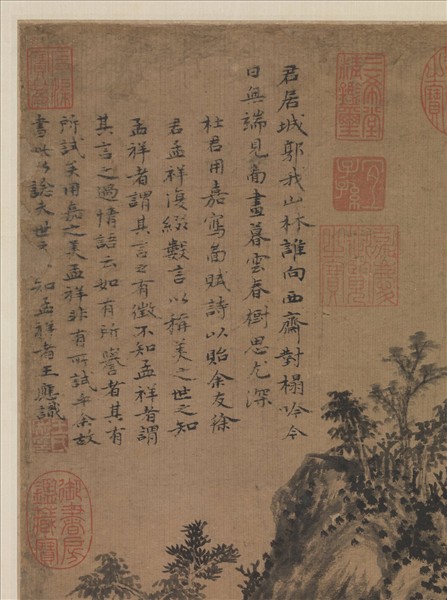 君居城郭我山林誰向西齋對榻吟今
日無端見畵畫暮雲春樹思尤深
杜君用嘉寫而賦詩以貽余友徐
君孟祥復綴數言以稱美之世之知
孟祥者謂其言之有徵不知孟祥者謂
其言之過情語云如有所譽者其有
所試矣用嘉之美孟祥非有所試乎余故
書此以諗夫世之知孟祥者王應識
三希堂精鑑璽
宜子孫
御書房鑑藏寶